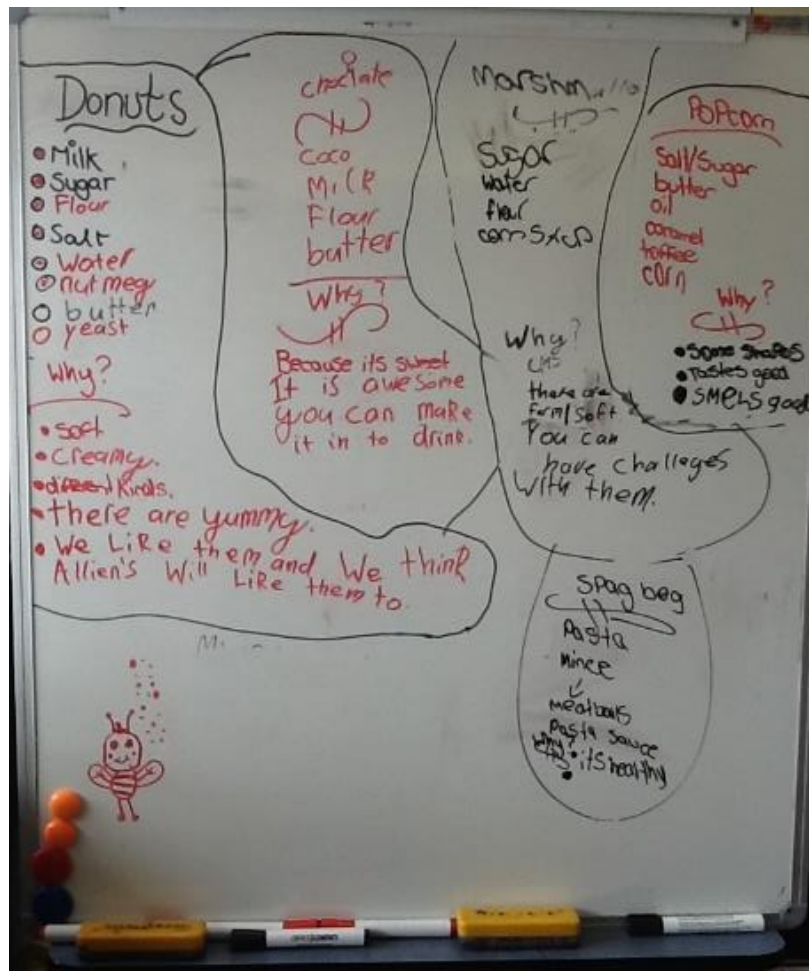 Donuts
Milk
Sugar
Flour
Salt
Water
nutmeg
butter
yeast
Why?
soft
creamy.
different Kinds.
there are yummy.
We Like them and We think
Allien's Will Like them to.
choclate
coco
Milk
Flour
butter
Why?
Because its sweet
It is awesome
you can make
it in to drink.
Marshmallo
Sugar
water
flour
Why?
there are
firm/soft
You can
have challeges
with them.
Popcorn
Salt/Sugar
butter
oil
caramel
toffee
corn
Why?
Some shapes
Tastes good
SMELS good
Spag beg
Pasta
Mince
meatballs
pasta sauce
Why?
its healthy